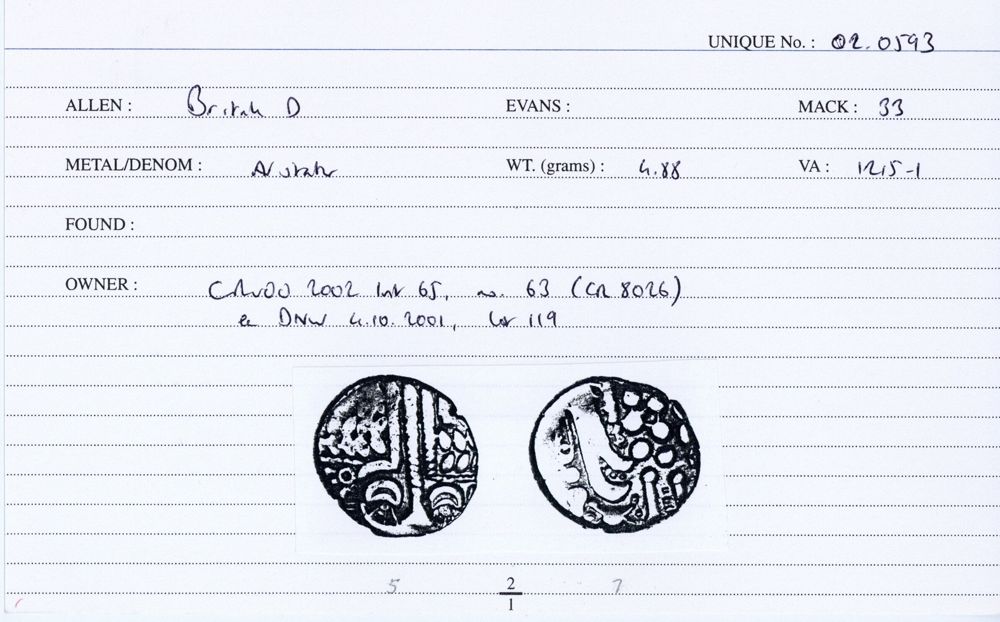 UNIQUE No. : 02.0593
ALLEN : British D EVANS : MACK : 33
METAL/DENOM : AV stater WT. (grams) : 4.88 VA : 1215-1
FOUND :
OWNER : 2002 list 65, no. 63 (CR 8026)
ex DNW 4.10.2001, lot 119
5 2/1 7